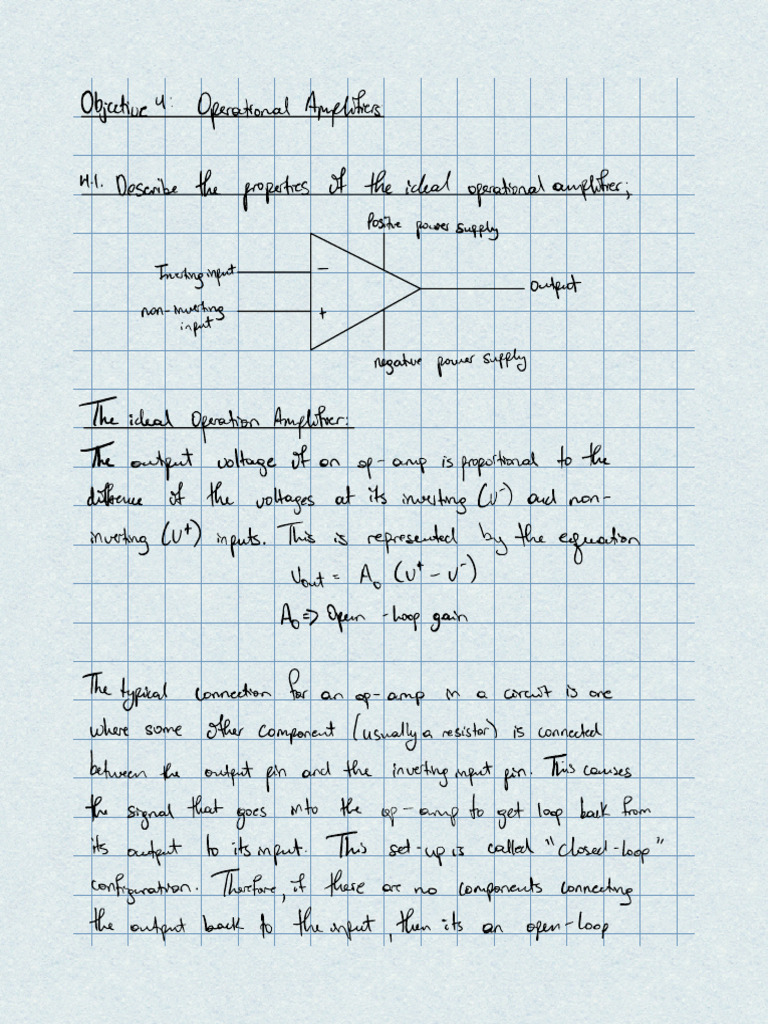 Objective 4: Operational Amplifiers
4.1. Describe the properties of the ideal operational amplifier;
Positive power supply
Inverting input
−
output
non-inverting
input
+
negative power supply
The ideal Operation Amplifier:
The output voltage of an op-amp is proportional to the
difference of the voltages at its inverting (V⁻) and non-
inverting (V⁺) inputs. This is represented by the equation
Vout = A₀ (V⁺ − V⁻)
A₀ => Open-loop gain
The typical connection for an op-amp in a circuit is one
where some other component (usually a resistor) is connected
between the output pin and the inverting input pin. This causes
the signal that goes into the op-amp to get loop back from
its output to its input. This set-up is called "closed-loop"
configuration. Therefore, if there are no components connecting
the output back to the input, then its an open-loop